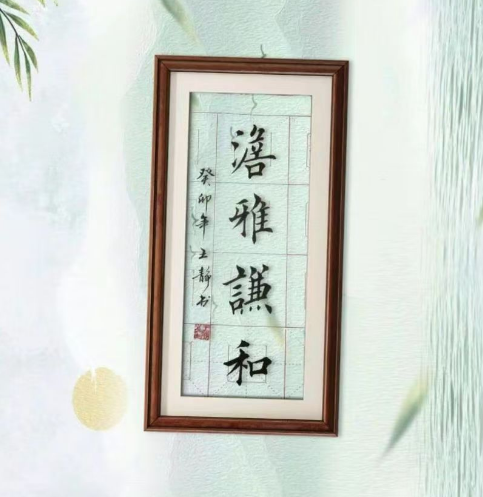 澹雅謙和
癸卯年王静书